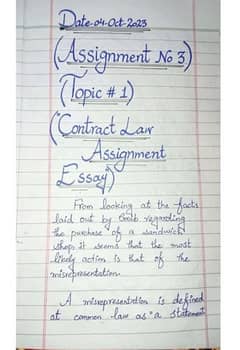 Date-04-Oct-2023
(Assignment No 3)
(Topic # 1)
("Contract Law
Assignment
Essay")
From looking at the facts
laid out by regarding
the purchase of a sandwich
shop, it seems that the most
likely action is that of the
misrepresentation.
A misrepresentation is defined
at common law as "a statement